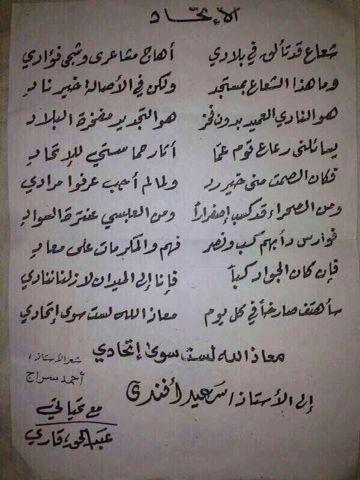 الإتحاد
شعاع قد تألق في بلادي أهاج مشاعري وشجى فؤادي
وما هذا الشعاع بمستجد ولكن في الأصالة خير ناد
هو النادي العميد بدون فخر هو التجديد مفخرة البلاد
يسائلني رعاع قوم عمّا أثار حماستي للإتحاد
فكان الصمت مني خير رد ولما لم أجب عرفوا مرادي
ومن الصحراء قد كسب إخضراراً ومن العبسي عنترة السواد
فوارس دأبهم كسب ونصر فهم والمكرمات على معاد
فإن كان الجواد كبا فإنا إلى الميدان لا زلنا ننادي
سأهتف صارخاً في كل يوم معاذ الله لست سوى إتحادي
معاذ الله لست سوى إتحادي
شعر الأستاذ/
أحمد سراج
إلى الأستاذ/ سعيد أفندي
مع تحياتي
عبد الحق قاري